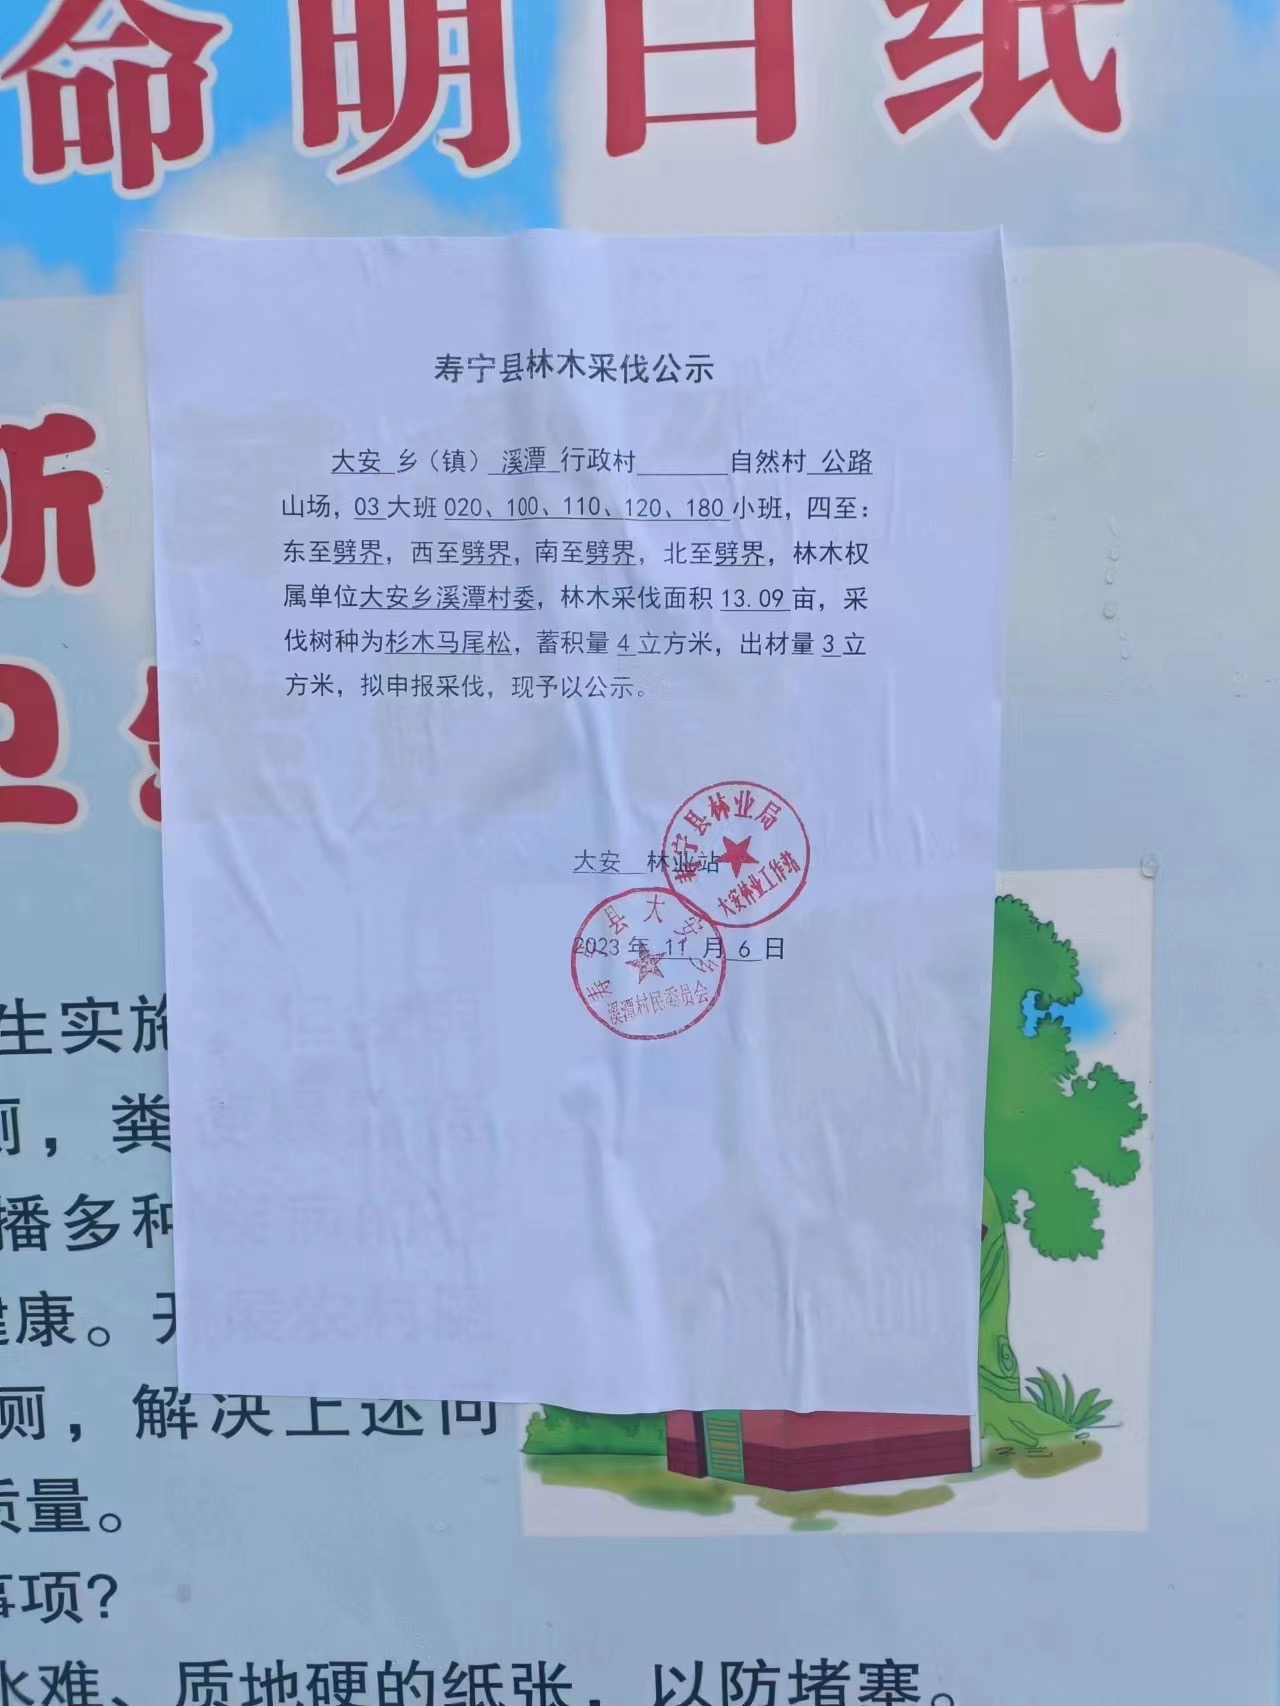 命明白纸
寿宁县林木采伐公示
大安 乡（镇） 溪潭 行政村 自然村 公路
山场，03大班020、100、110、120、180小班，四至：
东至劈界，西至劈界，南至劈界，北至劈界，林木权
属单位大安乡溪潭村委，林木采伐面积13.09亩，采
伐树种为杉木马尾松，蓄积量4立方米，出材量3立
方米，拟申报采伐，现予以公示。
大安 林业站
2023年 11 月 6 日
寿宁县林业局
大安林业工作站
寿宁县大安乡
溪潭村民委员会
所
卫生
生实施
厕，粪
播多种
健康。开
厕，解决上述问
质量。
事项?
水难、质地硬的纸张，以防堵塞。